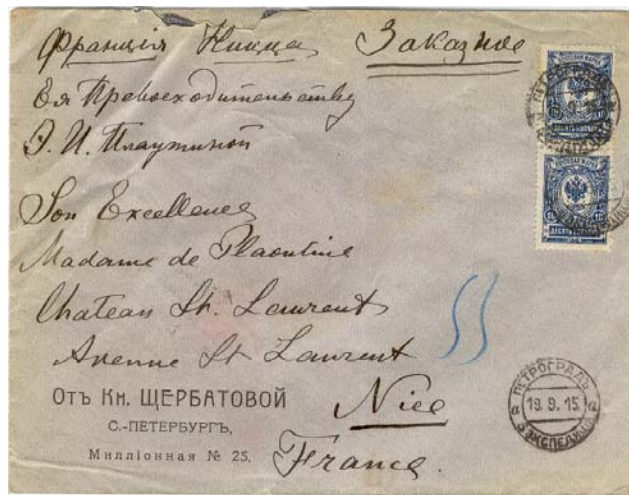 Франція Ницца Заказное
Ея Превосходительству
Э. И. Плаутиной
Son Excellence
Madame de Plaoutine
Chateau St. Laurent
Avenue St Laurent
Nice
France.
Отъ Кн. ЩЕРБАТОВОЙ
С.-ПЕТЕРБУРГЪ,
Милліонная № 25.
ПЕТРОГРАДЪ
19.9.15.
ЭКСПЕДИЦІЯ
ПОЧТОВАЯ МАРКА
10 10
ДЕСЯТЬ КОП.